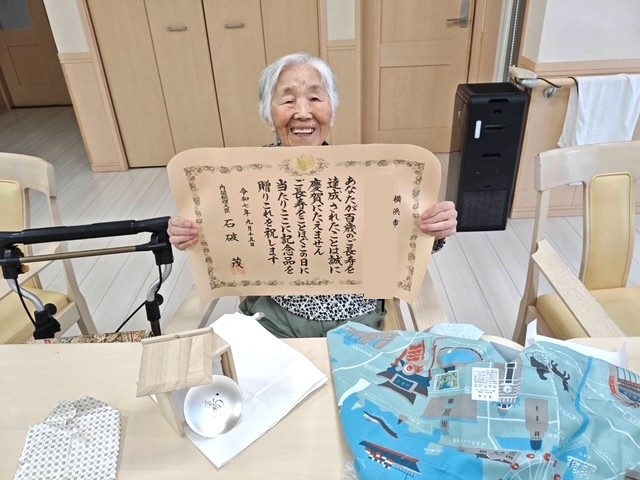 横浜市
あなたが百歳のご長寿を
達成されたことは誠に
慶賀にたえません
ご長寿をことほぐこの日に
当たりここに記念品を
贈りこれを祝します
令和七年九月十五日
内閣総理大臣 石破 茂
寿